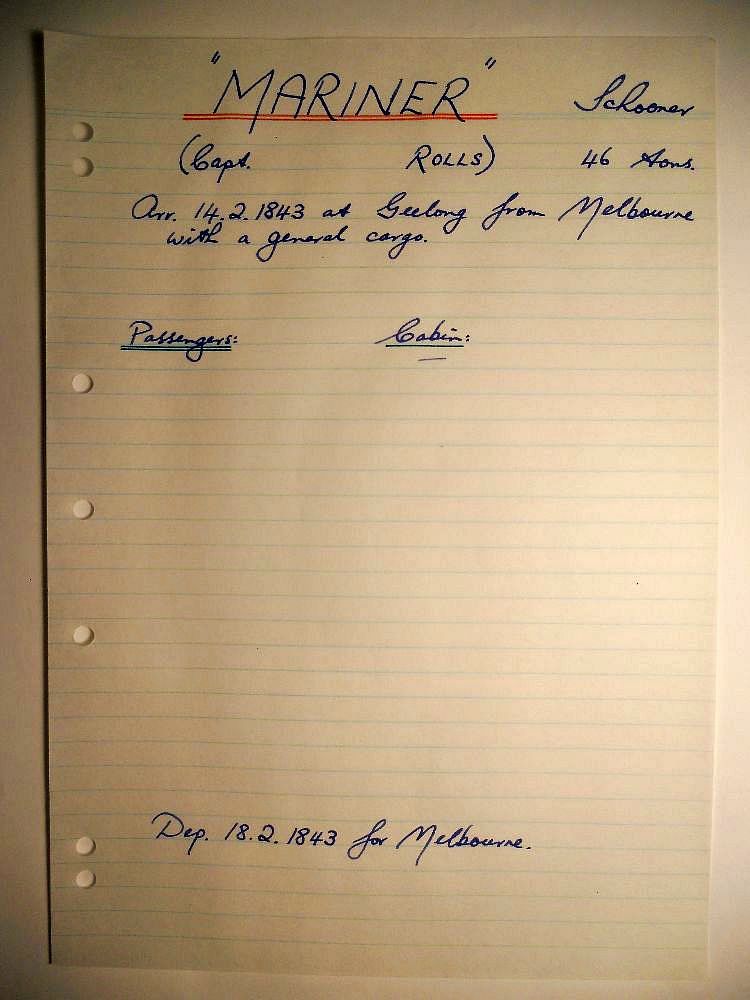 "MARINER" Schooner
(Capt. ROLLS) 46 tons.
Arr. 14.2.1843 at Geelong from Melbourne
with a general cargo.
Passengers: Cabin:
—
Dep. 18.2.1843 for Melbourne.